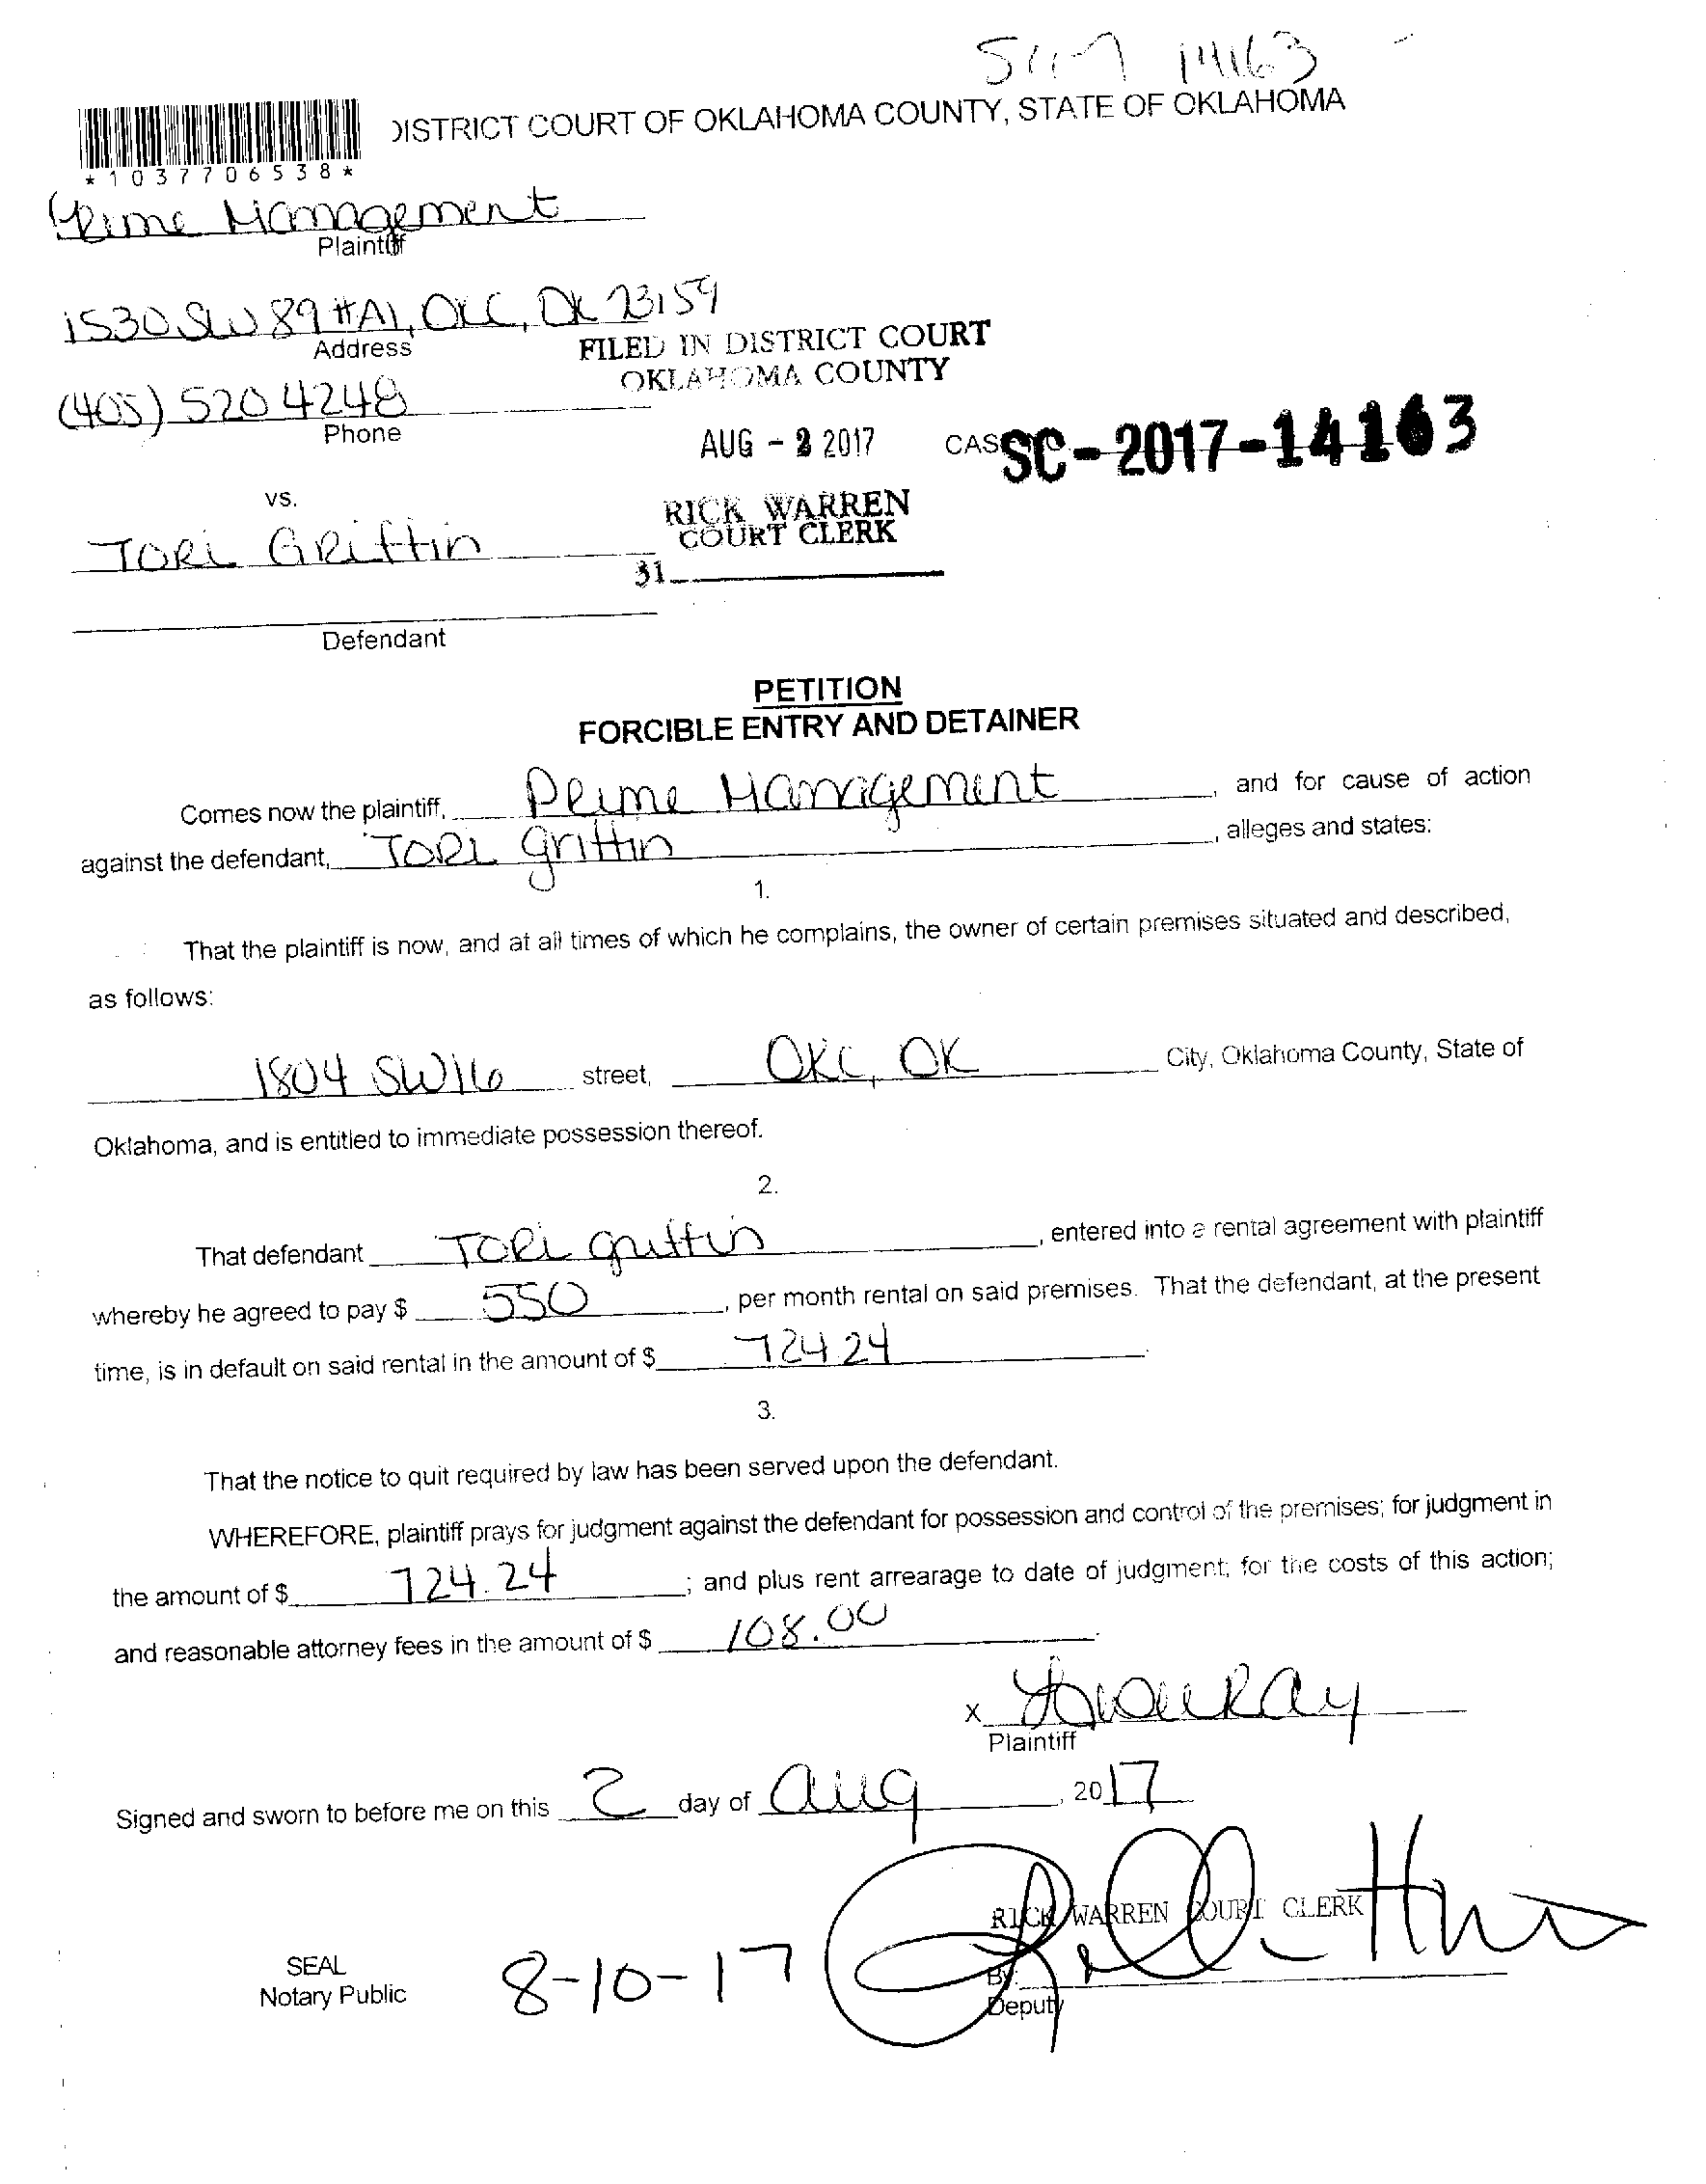 14163
DISTRICT COURT OF OKLAHOMA COUNTY, STATE OF OKLAHOMA
*1037706538*
Prime Management
Plaintiff
1530 SW 89 #A1, OKC, OK 73159
Address
FILED IN DISTRICT COURT
OKLAHOMA COUNTY
(405) 520 4248
Phone
AUG - 2 2017
CAS SC-2017-14163
vs.
RICK WARREN
COURT CLERK
TORi GRiffin
31
Defendant
PETITION
FORCIBLE ENTRY AND DETAINER
Comes now the plaintiff, Prime Management, and for cause of action
against the defendant, TORi griffin, alleges and states:
1.
That the plaintiff is now, and at all times of which he complains, the owner of certain premises situated and described,
as follows:
1804 SW16 street, OKC, OK City, Oklahoma County, State of
Oklahoma, and is entitled to immediate possession thereof.
2.
That defendant TORi griffin, entered into a rental agreement with plaintiff
whereby he agreed to pay $ 550, per month rental on said premises. That the defendant, at the present
time, is in default on said rental in the amount of $ 724.24.
3.
That the notice to quit required by law has been served upon the defendant.
WHEREFORE, plaintiff prays for judgment against the defendant for possession and control of the premises; for judgment in
the amount of $ 724.24; and plus rent arrearage to date of judgment; for the costs of this action;
and reasonable attorney fees in the amount of $ 108.00.
x
Plaintiff
Signed and sworn to before me on this 2 day of Aug, 2017
RICK WARREN COURT CLERK
SEAL
Notary Public
8-10-17
By:
Deputy